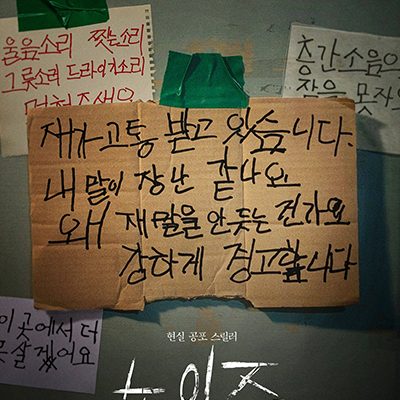 울음소리 짖는소리
그릇소리 드라이기소리
층간소음
잠을 못자
재가 고통 받고 있습니다.
내 말이 장난 같나요
왜 재 말을 안듣는 건가요
강하게 경고합니다
이 곳에서 더
못 살겠어요
현실 공포 스릴러
노이즈